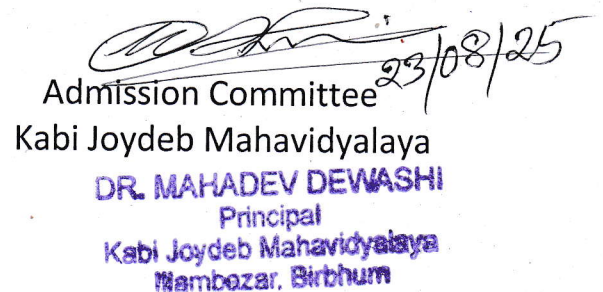 23/08/25
Admission Committee
Kabi Joydeb Mahavidyalaya
DR. MAHADEV DEWASHI
Principal
Kabi Joydeb Mahavidyalaya
Illambozar, Birbhum